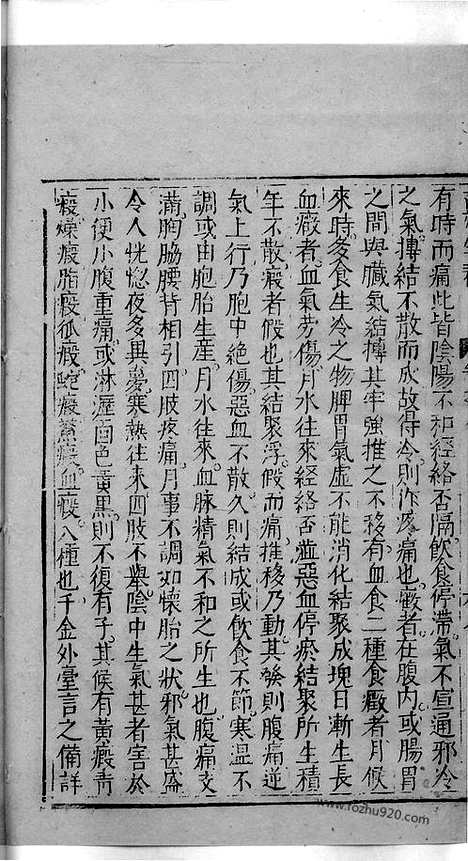 有時而痛此皆陰陽不和經絡否隔飲食停滯氣不宣通邪冷
之氣搏結不散而成故得冷則作疼痛也癥者在腹內或腸胃
之間與臟氣結搏其牢強推之不移有血食二種食癥者月候
來時多食生冷之物脾胃氣虛不能消化結聚成塊日漸生長
血癥者血氣勞傷月水往來經絡否澁惡血停瘀結聚所生積
年不散瘕者假也其結聚浮假而痛推移乃動其發則腹痛逆
氣上行乃胞中絶傷惡血不散久則結成或飲食不節寒溫不
調或由胞胎生産月水往來血脉精氣不和之所生也腹痛支
滿胸脇腰背相引四肢疼痛月事不調如懷胎之狀邪氣甚盛
令人恍惚夜多異夢寒熱往來四肢不舉陰中生氣甚者害於
小便小腹重痛或淋瀝面色黃黑則不復有子其候有黃瘕青
瘕燥瘕脂瘕狐瘕蛇瘕鱉瘕血瘕八種也千金外臺言之備詳
www.fozhu920.com